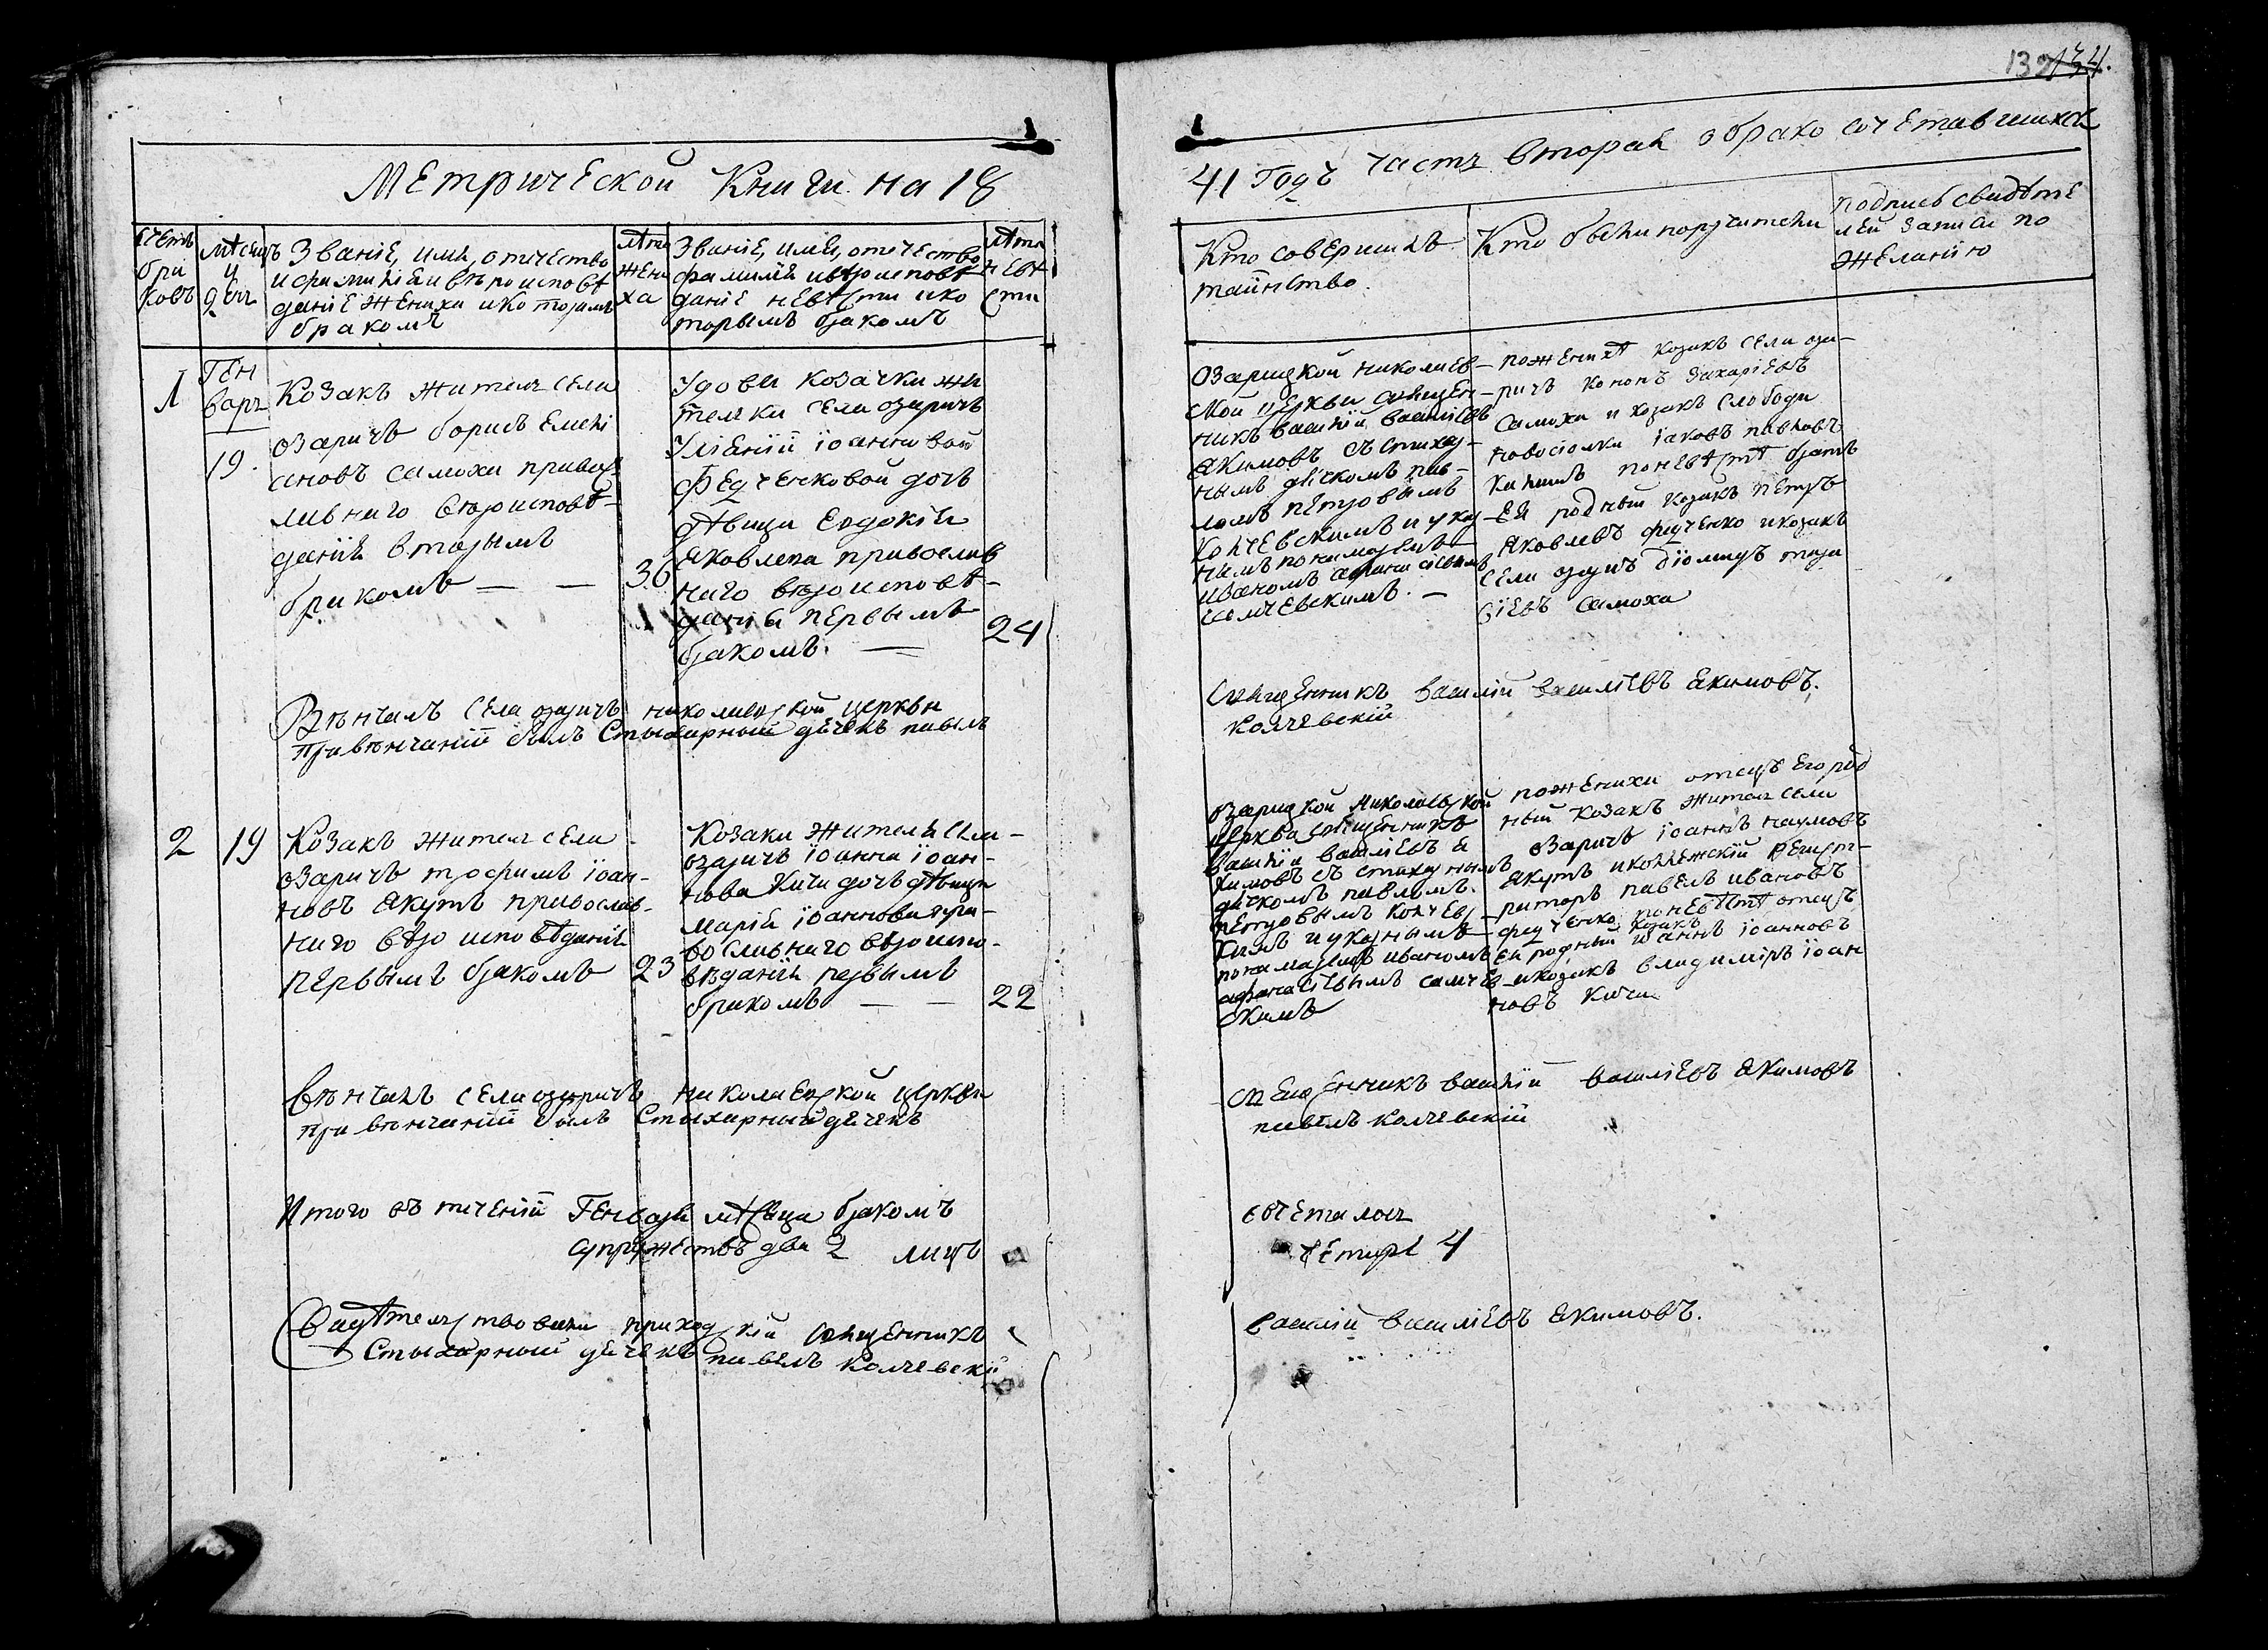 132 134.
Метрической Книги на 18
41 Годъ часть вторая о брако сочетавшихся
счетъ браковъ
мѣсяцъ и день
Званіе, имя, отчество
и фамилія и вѣроисповѣ
даніе жениха и которымъ
бракомъ
лѣта жени ха
Званіе, имя, отчество
фамилія и вѣроисповѣ
даніе невѣсты и ко
торымъ бракомъ
лѣта невѣ сты
Кто совершалъ
таинство
Кто были поручители
подпись свидѣте
лей записи по
желанію
1
Ген
варь
19.
Козакъ житель села
Озаричъ Борисъ Емелі
ановъ Самоха правос
лавнаго вѣроисповѣ-
данія вторымъ
бракомъ — — 36
Удовы козачки жи
телки села Озаричъ
Уліаніи Іоанновой
Федченковой дочь
дѣвица Евдокія
Яковлева православ
наго вѣроисповѣ-
данія первымъ
бракомъ. — 24
Озарицкой Николаев-
ской церкви священ-
никъ Василій Василіевъ
Якимовъ съ стихар-
нымъ дячкомъ Пав-
ломъ Петровымъ
Колчевскимъ и указ-
нымъ пономаремъ
Иваномъ Афанасіевымъ
Самчевскимъ. —
по женихѣ козакъ села Оза-
ричъ Кононъ Захаріевъ
Самоха и козакъ слободы
Новоселки Іаковъ Павловъ
по невѣстѣ братъ
ея родный козакъ Петръ
Яковлевъ Федченко и козакъ
села Озаричъ Діомидъ Тара
сіевъ Самоха
Вѣнчалъ села Озаричъ Николаевской церкви
при вѣнчаніи былъ Стыхарный дячекъ Павелъ
Священникъ Василій Василіевъ Якимовъ.
Колчевскій
2
19
Козакъ житель села
Озаричъ Трофимъ Іоан-
новъ Якутъ православ-
наго вѣроисповѣданія
первымъ бракомъ 23
Козака жителя села-
Озаричъ Іоанна Іоан-
нова Кичи дочь дѣвица
Марія Іоаннова пра-
вославнаго вѣроиспо-
вѣданія первымъ
бракомъ — — 22
Озарицкой Николаевской
церкви священникъ
Василій Василіевъ Я
кимовъ съ стихарнымъ
дячкомъ Павломъ
Петровымъ Колчевс-
кимъ и указнымъ
пономаремъ Иваномъ
Афанасіевымъ Самчев-
скимъ
по жениха отецъ его род
ный козакъ житель села
Озаричъ Іоаннъ Наумовъ
Якутъ и колежскій регист-
раторъ Павелъ Ивановъ
Федченко по невѣстѣ отецъ
ея родный козакъ Іоаннъ Іоанновъ
и козакъ Владимиръ Іоан
новъ Кича
Вѣнчалъ села Озаричъ Николаевской церкви
при вѣнчаніи былъ Стыхарный дячекъ
священникъ Василій Василіевъ Якимовъ
Павелъ Колчевскій
Итого въ теченіи Генваря мѣсяца бракомъ
сочеталось
супружествъ два 2 лицъ
четыре 4
Свидѣтельствовали приходскій священникъ
Василій Василіевъ Якимовъ.
Стыхарный дячекъ Павелъ Колчевскій